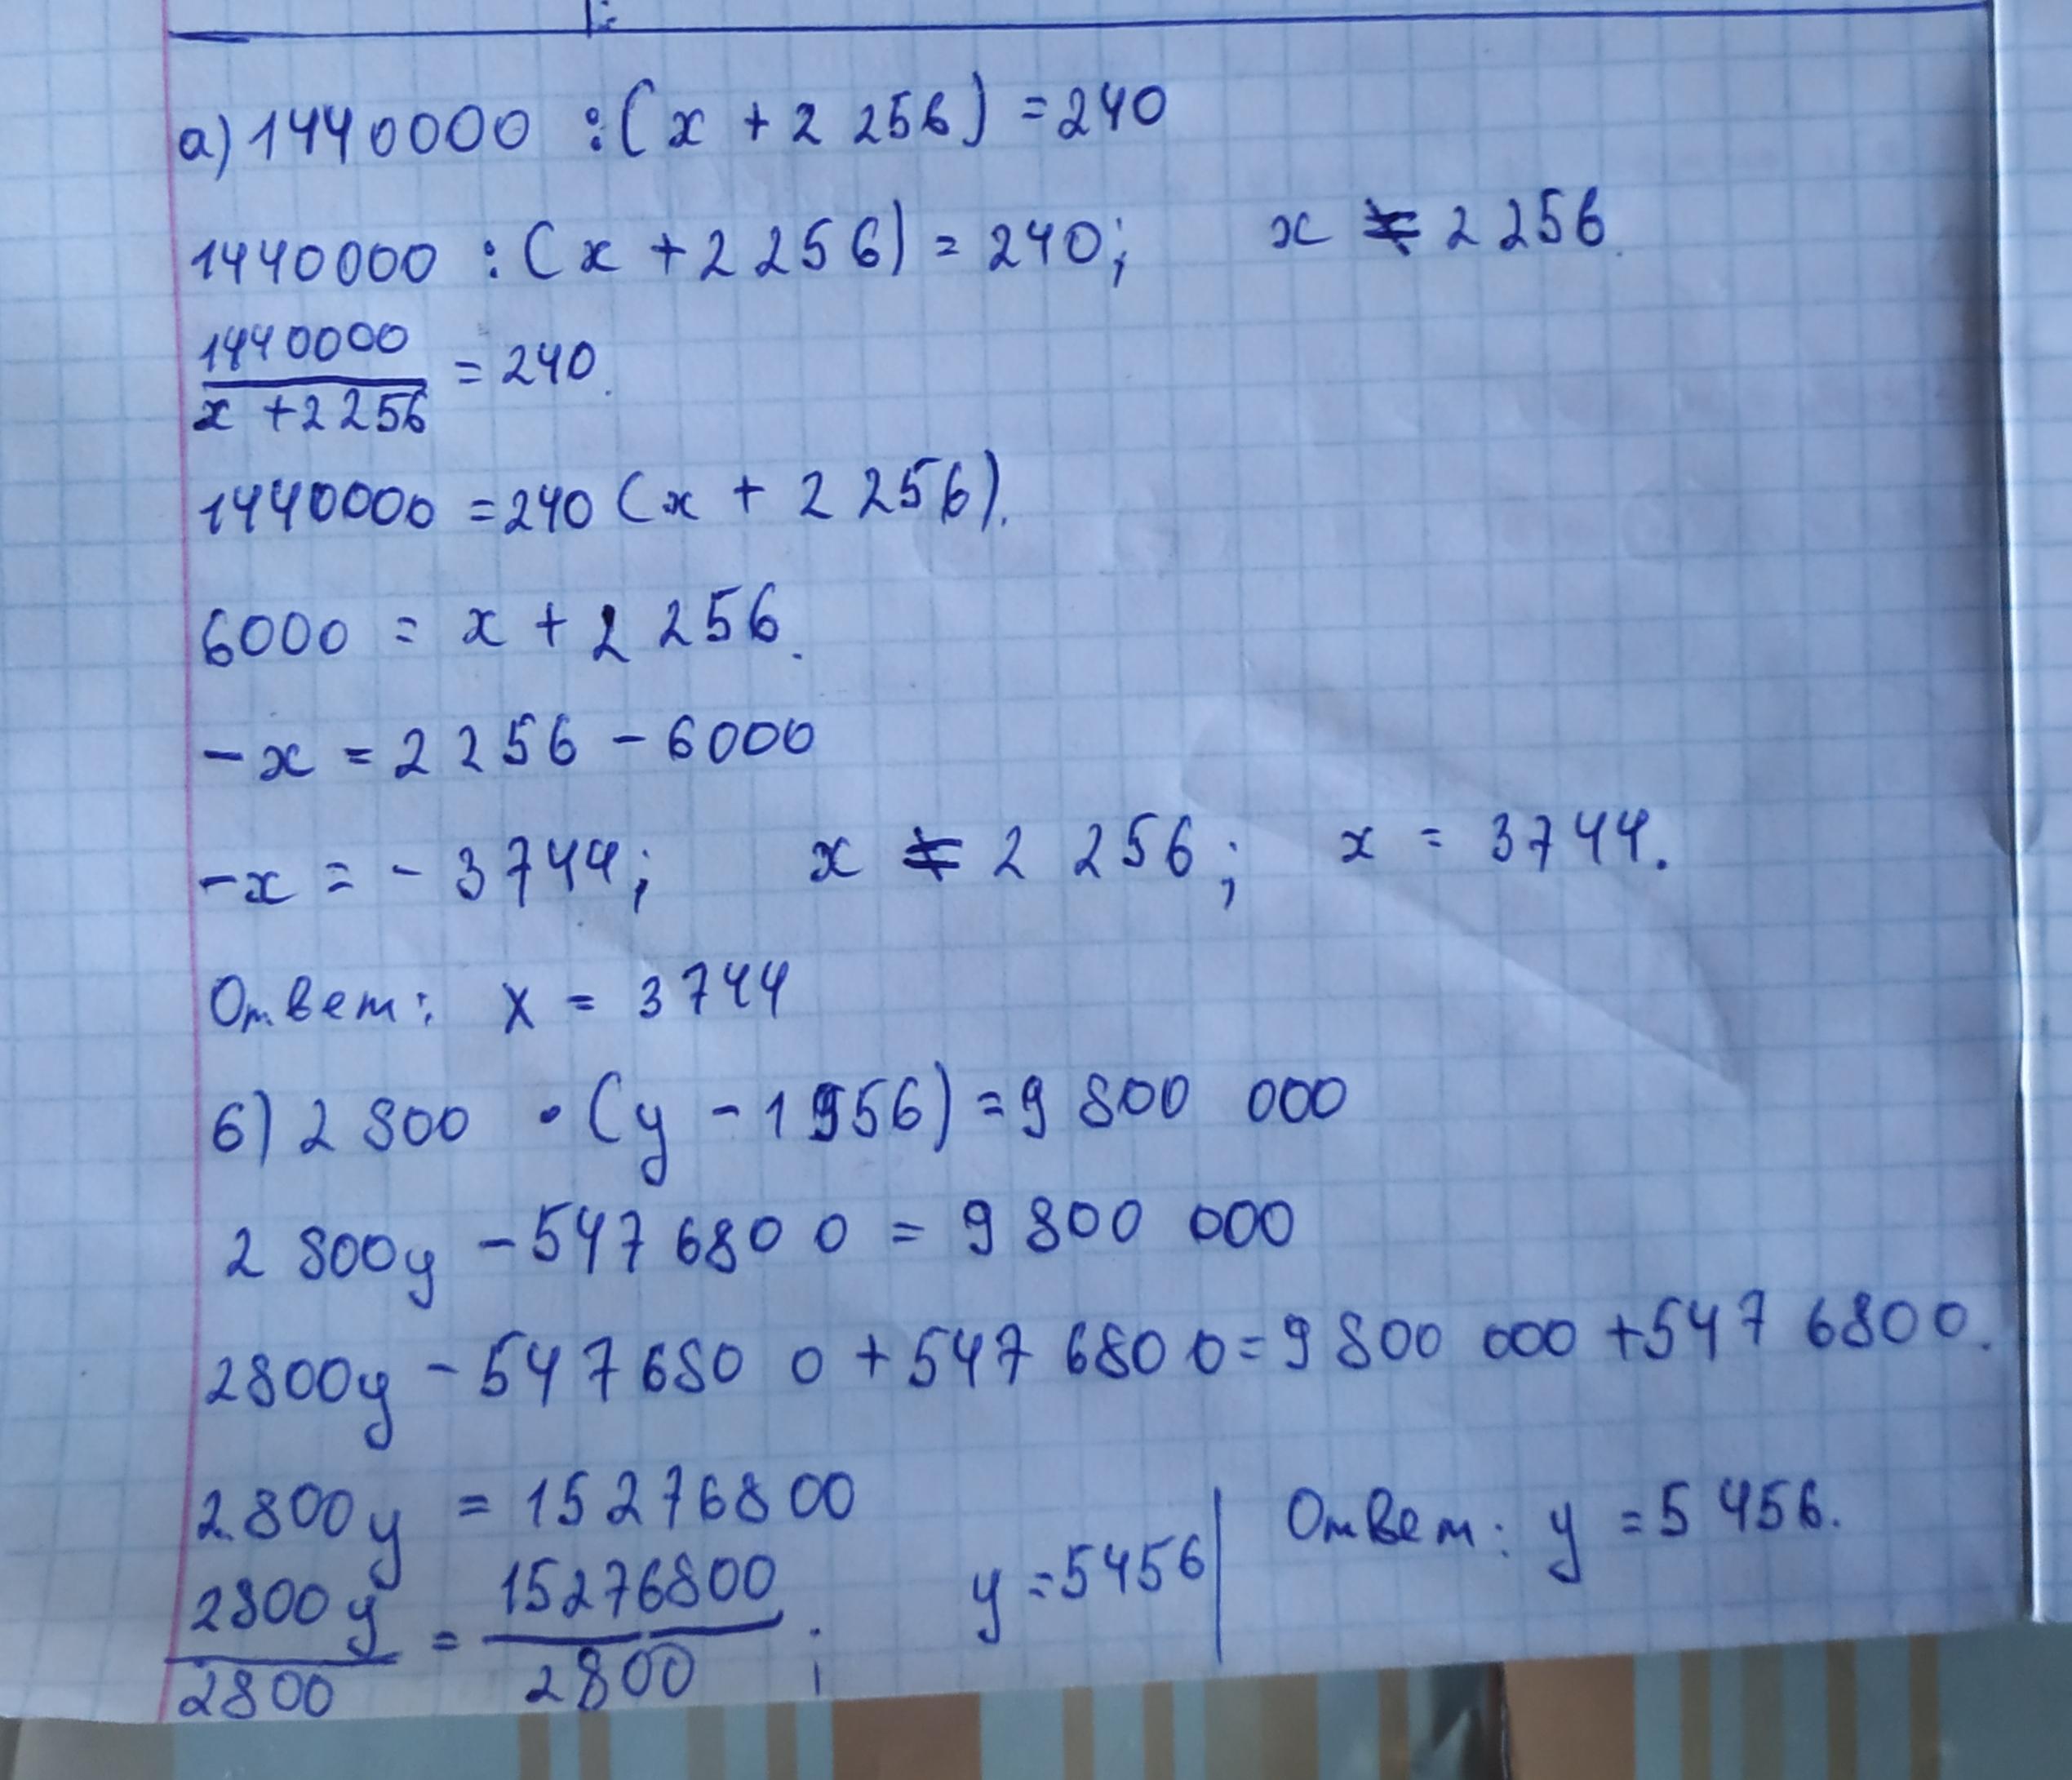 а) 1440000 : (x + 2 256) = 240
1440000 : (x + 2256) = 240; x ≠ 2 256.
1440000
x + 2256
= 240.
1440000 = 240 (x + 2 256).
6000 = x + 2 256.
-x = 2 256 - 6000
-x = - 3744; x ≠ 2 256; x = 3744.
Ответ: x = 3744
б) 2 800 · (y - 1956) = 9 800 000
2 800y - 547 680 0 = 9 800 000
2800y - 547 680 0 + 547 680 0 = 9 800 000 + 547 6800.
2800y = 15276800
2800y
2800
=
15276800
2800
; y = 5456
Ответ: y = 5 456.